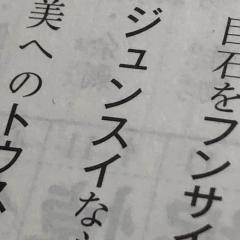 目石をフンサイ
ジュンスイな
美へのトウス